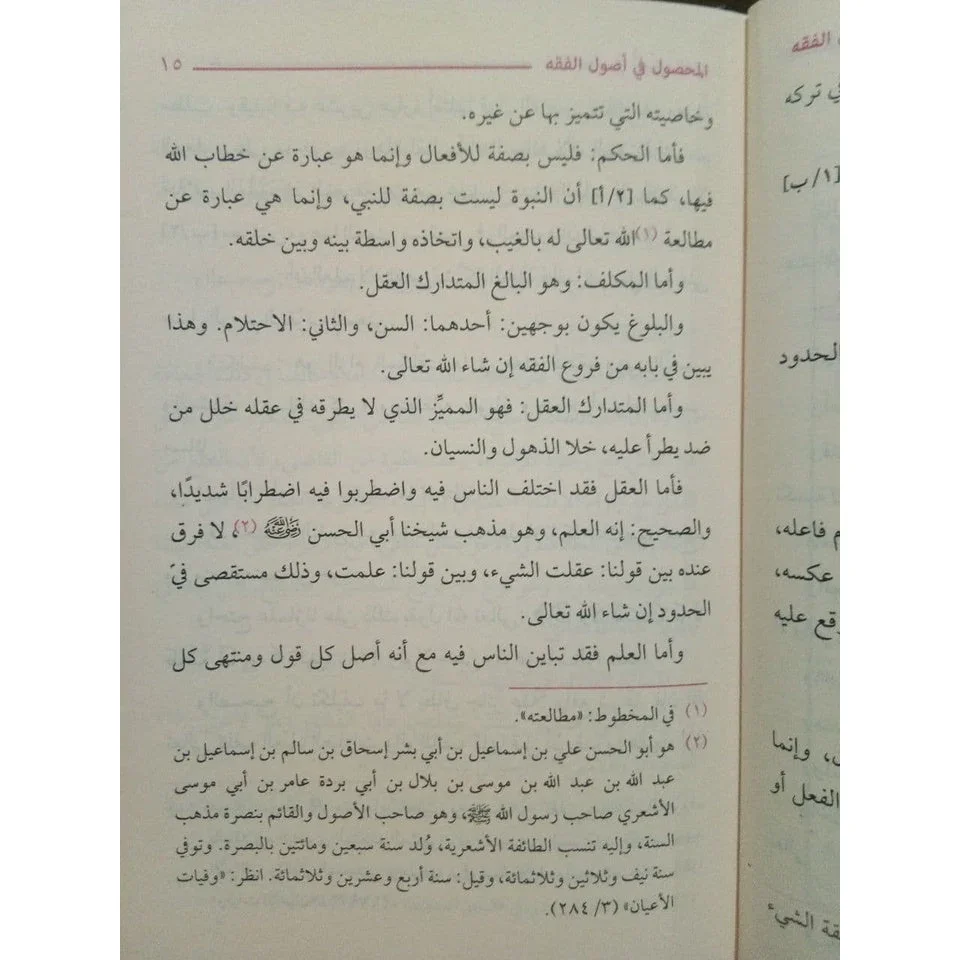 المحصول في أصول الفقه ١٥
وخاصيته التي تتميز بها عن غيره.
فأما الحكم: فليس بصفة للأفعال وإنما هو عبارة عن خطاب الله
فيها، كما [٢/أ] أن النبوة ليست بصفة للنبي، وإنما هي عبارة عن
مطالعة (١) الله تعالى له بالغيب، واتخاذه واسطة بينه وبين خلقه.
وأما المكلف: وهو البالغ المتدارك العقل.
والبلوغ يكون بوجهين: أحدهما: السن، والثاني: الاحتلام. وهذا
يبين في بابه من فروع الفقه إن شاء الله تعالى.
وأما المتدارك العقل: فهو المميِّز الذي لا يطرقه في عقله خلل من
ضد يطرأ عليه، خلا الذهول والنسيان.
فأما العقل فقد اختلف الناس فيه واضطربوا فيه اضطرابًا شديدًا،
والصحيح: إنه العلم، وهو مذهب شيخنا أبي الحسن رضي الله عنه (٢)، لا فرق
عنده بين قولنا: عقلت الشيء، وبين قولنا: علمت، وذلك مستقصى في
الحدود إن شاء الله تعالى.
وأما العلم فقد تباين الناس فيه مع أنه أصل كل قول ومنتهى كل
(١) في المخطوط: «مطالعته».
(٢) هو أبو الحسن علي بن إسماعيل بن أبي بشر إسحاق بن سالم بن إسماعيل بن
عبد الله بن عبد الله بن موسى بن بلال بن أبي بردة عامر بن أبي موسى
الأشعري صاحب رسول الله ﷺ، وهو صاحب الأصول والقائم بنصرة مذهب
السنة، وإليه تنسب الطائفة الأشعرية، وُلد سنة سبعين ومائتين بالبصرة. وتوفي
سنة نيف وثلاثين وثلاثمائة، وقيل: سنة أربع وعشرين وثلاثمائة. انظر: «وفيات
الأعيان» (٣/ ٢٨٤).
الفقه
تركه
[١/ب]
لحدود
فاعله،
عكسه،
قع عليه
، وإنما
الفعل أو
قة الشيء